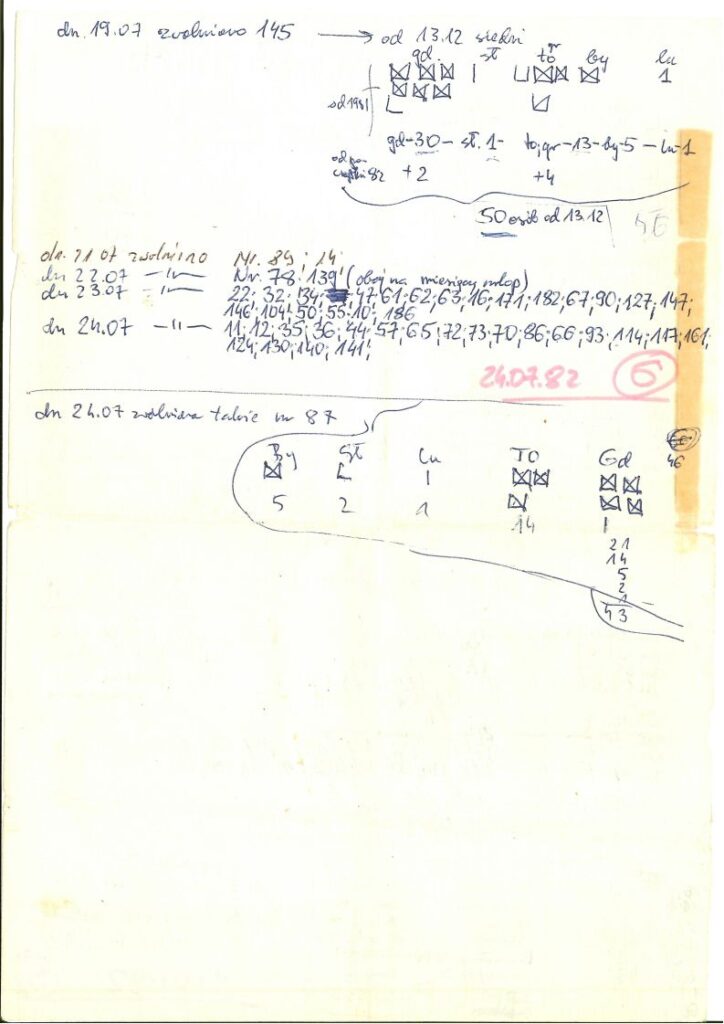 dn. 19.07 zwolniono 145 → od 13.12 siedzi
gd. sł to gr by łu
1
od 1981
gd-30- sł. 1- to, gr-13-by-5-łu-1
82 +2 +4
50 osób od 13.12
dn. 21.07 zwolniono Nr. 89; 14;
dn 22.07 -"- Nr. 78; 139; (oboj na miesięczny urlop)
dn 23.07 -"- 22; 32; 34; 47; 61; 62; 63; 16; 171; 182; 67; 90; 127; 147;
146; 104; 50; 55; 10; 186
dn 24.07 -"- 11; 12; 35; 36; 44; 57; 65; 72; 73; 70; 86; 66; 93; 114; 117; 161;
124; 130; 140; 141;
24.07.82 6
dn 24.07 zwolniona także nr 87
46
By Sł Łu TO Gd
5 2 1 14
21
14
5
2
1
43